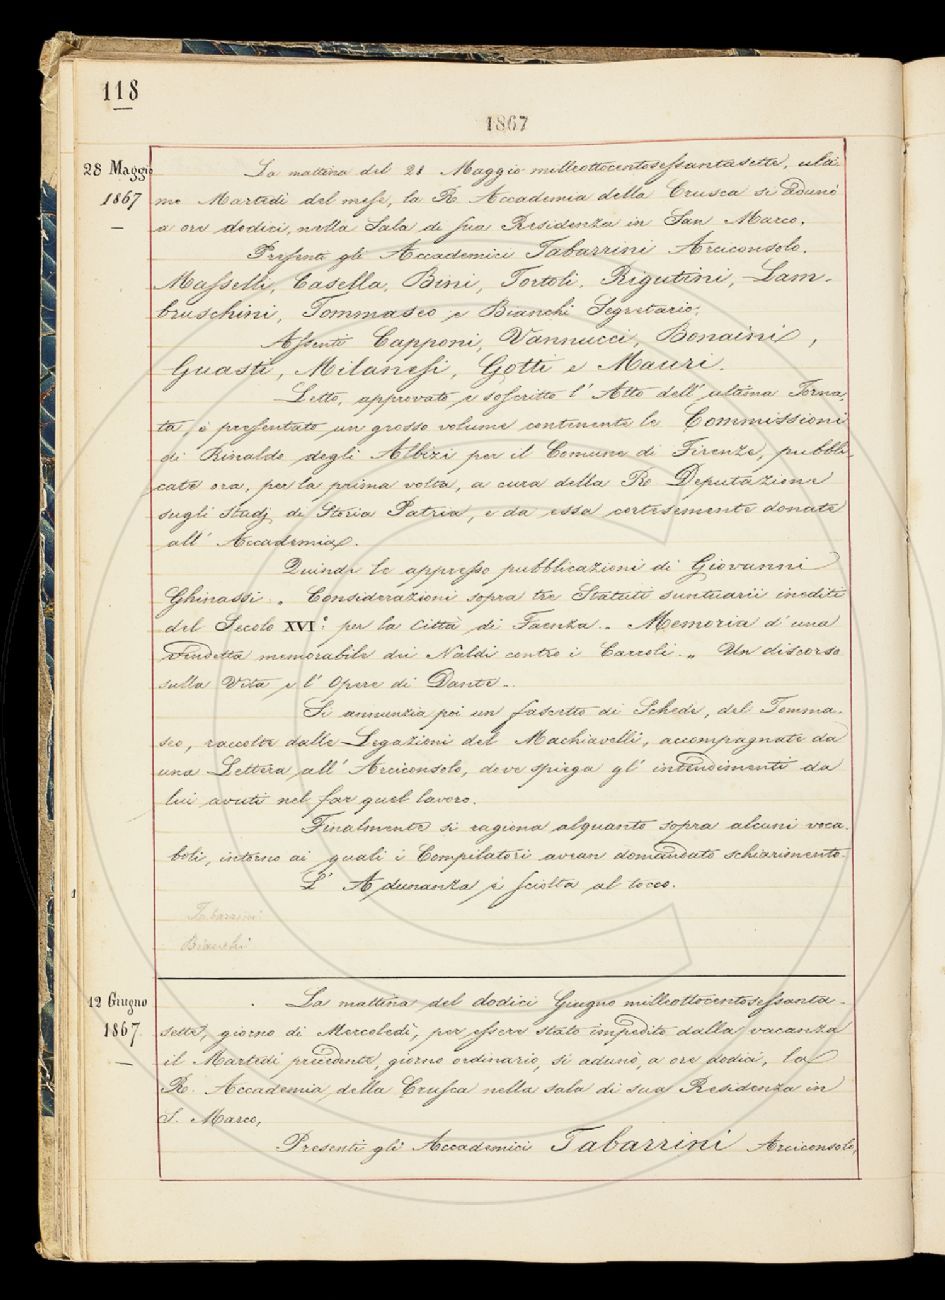 118
1867
28 Maggio
1867
La mattina del 28 Maggio milleottocentosessantasette, ulti-
mo Martedì del mese, la R. Accademia della Crusca si adunò
a ore dodici, nella Sala di sua Residenza in San Marco.
Presenti gli Accademici Tabarrini Arciconsolo.
Masselli, Casella, Bini, Tortoli, Rigutini, Lam-
bruschini, Tommaseo e Bianchi Segretario;
Assenti Capponi, Vannucci, Bonaini,
Guasti, Milanesi, Gotti e Mauri.
Letto, approvato e soscritto l' Atto dell' ultima Torna-
ta, è presentato un grosso volume contenente le Commissioni
di Rinaldo degli Albizi per il Comune di Firenze, pubbli-
cate ora, per la prima volta, a cura della R. Deputazione
sugli Studj di Storia Patria, e da essa cortesemente donate
all' Accademia.
Quindi le appresso pubblicazioni di Giovanni
Ghinassi: „ Considerazioni sopra tre Statuti suntuarii inediti
del Secolo XVI.° per la Città di Faenza. „ Memoria d' una
vendetta memorabile dei Naldi contro i Carroli. „ Un discorso
sulla Vita e l' Opere di Dante „.
Si annunzia poi un fascetto di Schede, del Tomma-
seo, raccolte dalle Legazioni del Machiavelli, accompagnate da
una Lettera all' Arciconsolo, dove spiega gl' intendimenti da
lui avuti nel far quel lavoro.
Finalmente si ragiona alquanto sopra alcuni voca-
boli, intorno ai quali i Compilatori avean domandato schiarimento.
L' Adunanza è sciolta al tocco.
Tabarrini
Bianchi
12 Giugno
1867
La mattina del dodici Giugno milleottocentosessanta-
sette, giorno di Mercoledì, per essere stato impedito dalla vacanza
il Martedì precedente, giorno ordinario, si adunò, a ore dodici, la
R. Accademia della Crusca nella sala di sua Residenza in
S. Marco,
Presenti gli Accademici Tabarrini Arciconsolo,